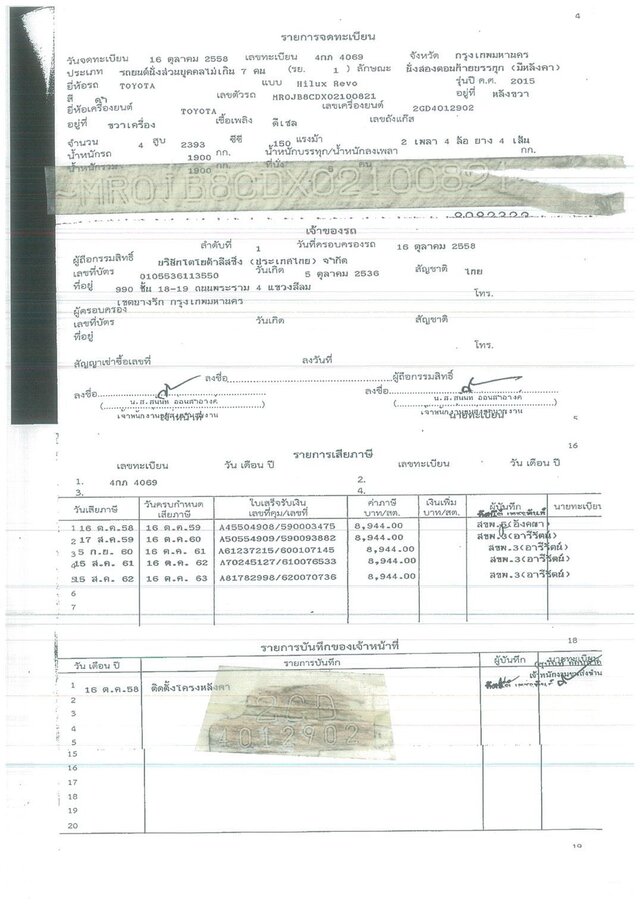 4
รายการจดทะเบียน
วันจดทะเบียน 16 ตุลาคม 2558 เลขทะเบียน 4กภ 4069 จังหวัด กรุงเทพมหานคร
ประเภท รถยนต์นั่งส่วนบุคคลไม่เกิน 7 คน (รย. 1 ) ลักษณะ นั่งสองตอนท้ายบรรทุก (มีหลังคา)
ยี่ห้อรถ TOYOTA แบบ Hilux Revo รุ่นปี ค.ศ. 2015
สี ดำ เลขตัวรถ MR0JB8CDX02100821 อยู่ที่ หลังขวา
ยี่ห้อเครื่องยนต์ TOYOTA เลขเครื่องยนต์ 2GD4012902
อยู่ที่ ขวาเครื่อง เชื้อเพลิง ดีเซล เลขถังแก๊ส
จำนวน 4 สูบ 2393 ซีซี 150 แรงม้า 2 เพลา 4 ล้อ ยาง 4 เส้น
น้ำหนักรถ 1900 กก. น้ำหนักบรรทุก/น้ำหนักลงเพลา กก.
น้ำหนักรวม 1900 กก. ที่นั่ง คน
MR0JB8CDX02100821
เจ้าของรถ
ลำดับที่ 1 วันที่ครอบครองรถ 16 ตุลาคม 2558
ผู้ถือกรรมสิทธิ์ บริษัทโตโยต้าลีสซิ่ง (ประเทศไทย) จำกัด
เลขที่บัตร 0105536113550 วันเกิด 5 ตุลาคม 2536 สัญชาติ ไทย
ที่อยู่ 990 ชั้น 18-19 ถนนพระราม 4 แขวงสีลม
เขตบางรัก กรุงเทพมหานคร โทร.
ผู้ครอบครอง
เลขที่บัตร วันเกิด สัญชาติ
ที่อยู่
โทร.
สัญญาเช่าซื้อเลขที่ ลงวันที่
ลงชื่อ ผู้ถือกรรมสิทธิ์
ลงชื่อ ลงชื่อ
เจ้าหน้าที่ นายทะเบียน
16
รายการเสียภาษี
เลขทะเบียน วัน เดือน ปี เลขทะเบียน วัน เดือน ปี
1. 4กภ 4069 2.
3. 4.
วันเสียภาษี วันครบกำหนดเสียภาษี ใบเสร็จรับเงิน เลขที่คุม/เลขที่ ค่าภาษี บาท/สต. เงินเพิ่ม บาท/สต. ผู้บันทึก นายทะเบียน
1 16 ต.ค.58 16 ต.ค.59 A45504908/590003475 8,944.00
2 17 ส.ค.59 16 ต.ค.60 A50554909/590093882 8,944.00 สขพ.3(อารีรัตน์)
3 5 ก.ย. 60 16 ต.ค. 61 A61237215/600107145 8,944.00 สขพ.3(อารีรัตน์)
4 15 ส.ค. 61 16 ต.ค. 62 A70245127/610076533 8,944.00 สขพ.3(อารีรัตน์)
5 15 ส.ค. 62 16 ต.ค. 63 A81782998/620070736 8,944.00 สขพ.3(อารีรัตน์)
6
7
18
รายการบันทึกของเจ้าหน้าที่
วัน เดือน ปี รายการบันทึก ผู้บันทึก นายทะเบียน
1 16 ต.ค.58 ติดตั้งโครงหลังคา
2
3
4
5
2GD
4012902
15
16
17
18
19
20
19